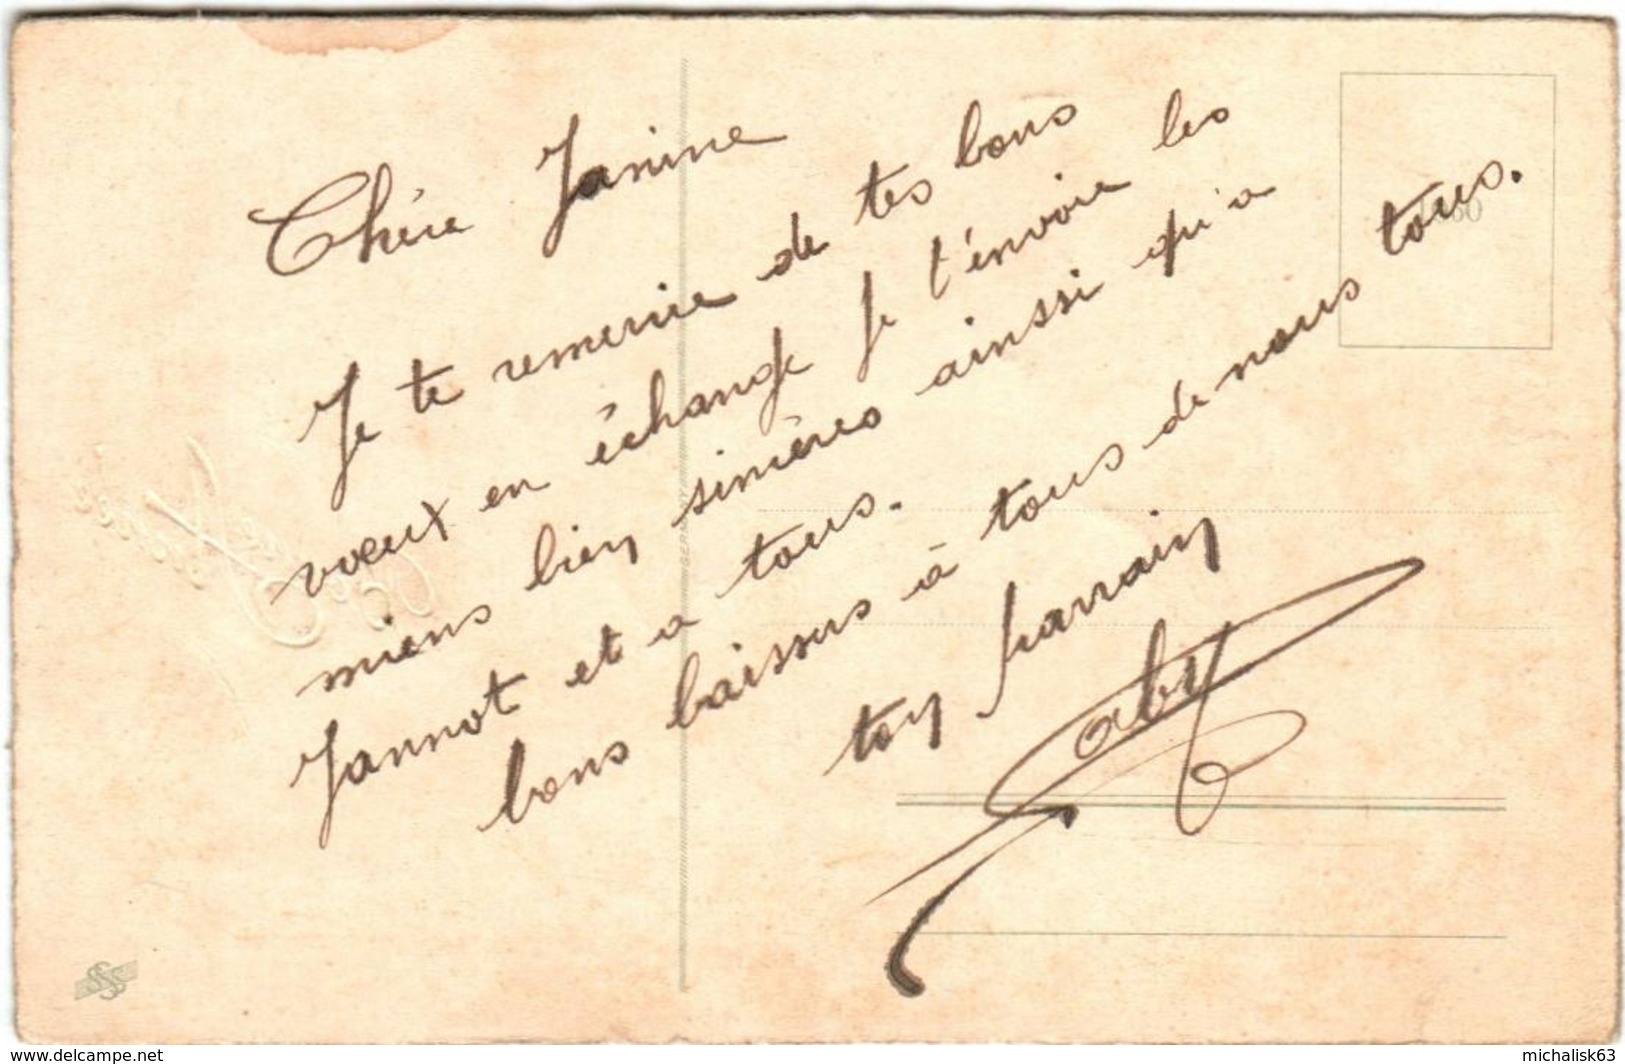 Chère Janine
Je te remercie de tes bons
voeux en échange je t'envoie les
miens bien sincères ainssi qu'a
Jannot et a tous.
bons baissers à tous de nous tous.
ton parrain
Gaby
www.delcampe.net
michalisk63